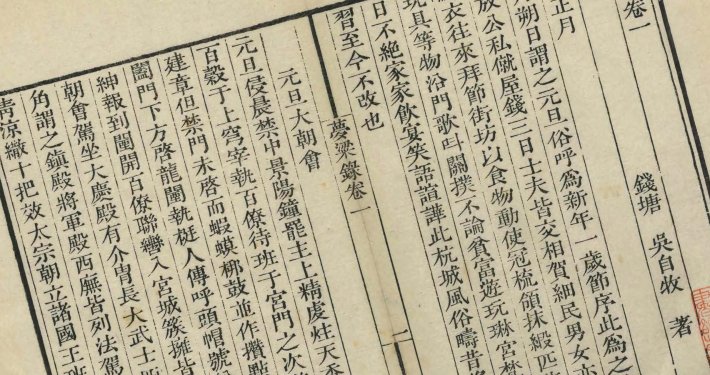 卷一
錢塘 吳自牧 著
正月
朔日謂之元旦俗呼爲新年一歲節序此爲之
放公私僦屋錢三日士夫皆交相賀細民男女亦
衣往來拜節街坊以食物動使冠梳領抹緞匹
玩具等物沿門歌呌關撲不論貧富遊玩琳宮梵
日不絕家家飲宴笑語諠譁此杭城風俗疇昔
習至今不改也
夢粱錄卷一
一
元旦大朝會
元旦侵晨禁中景陽鐘罷主上精虔炷天香
百穀于上穹宰執百僚待班于宮門之次
建章但禁門未啓而蝦蟆梆鼓並作攢點
闔門下方啓龍闈執梃人傳呼頭帽號
紳報到闈開百僚聯轡入宮城簇擁皆
朝會駕坐大慶殿有介冑長大武士
角謂之鎮殿將軍殿西廡皆列法駕
青涼繖十把效太宗朝立諸國王班